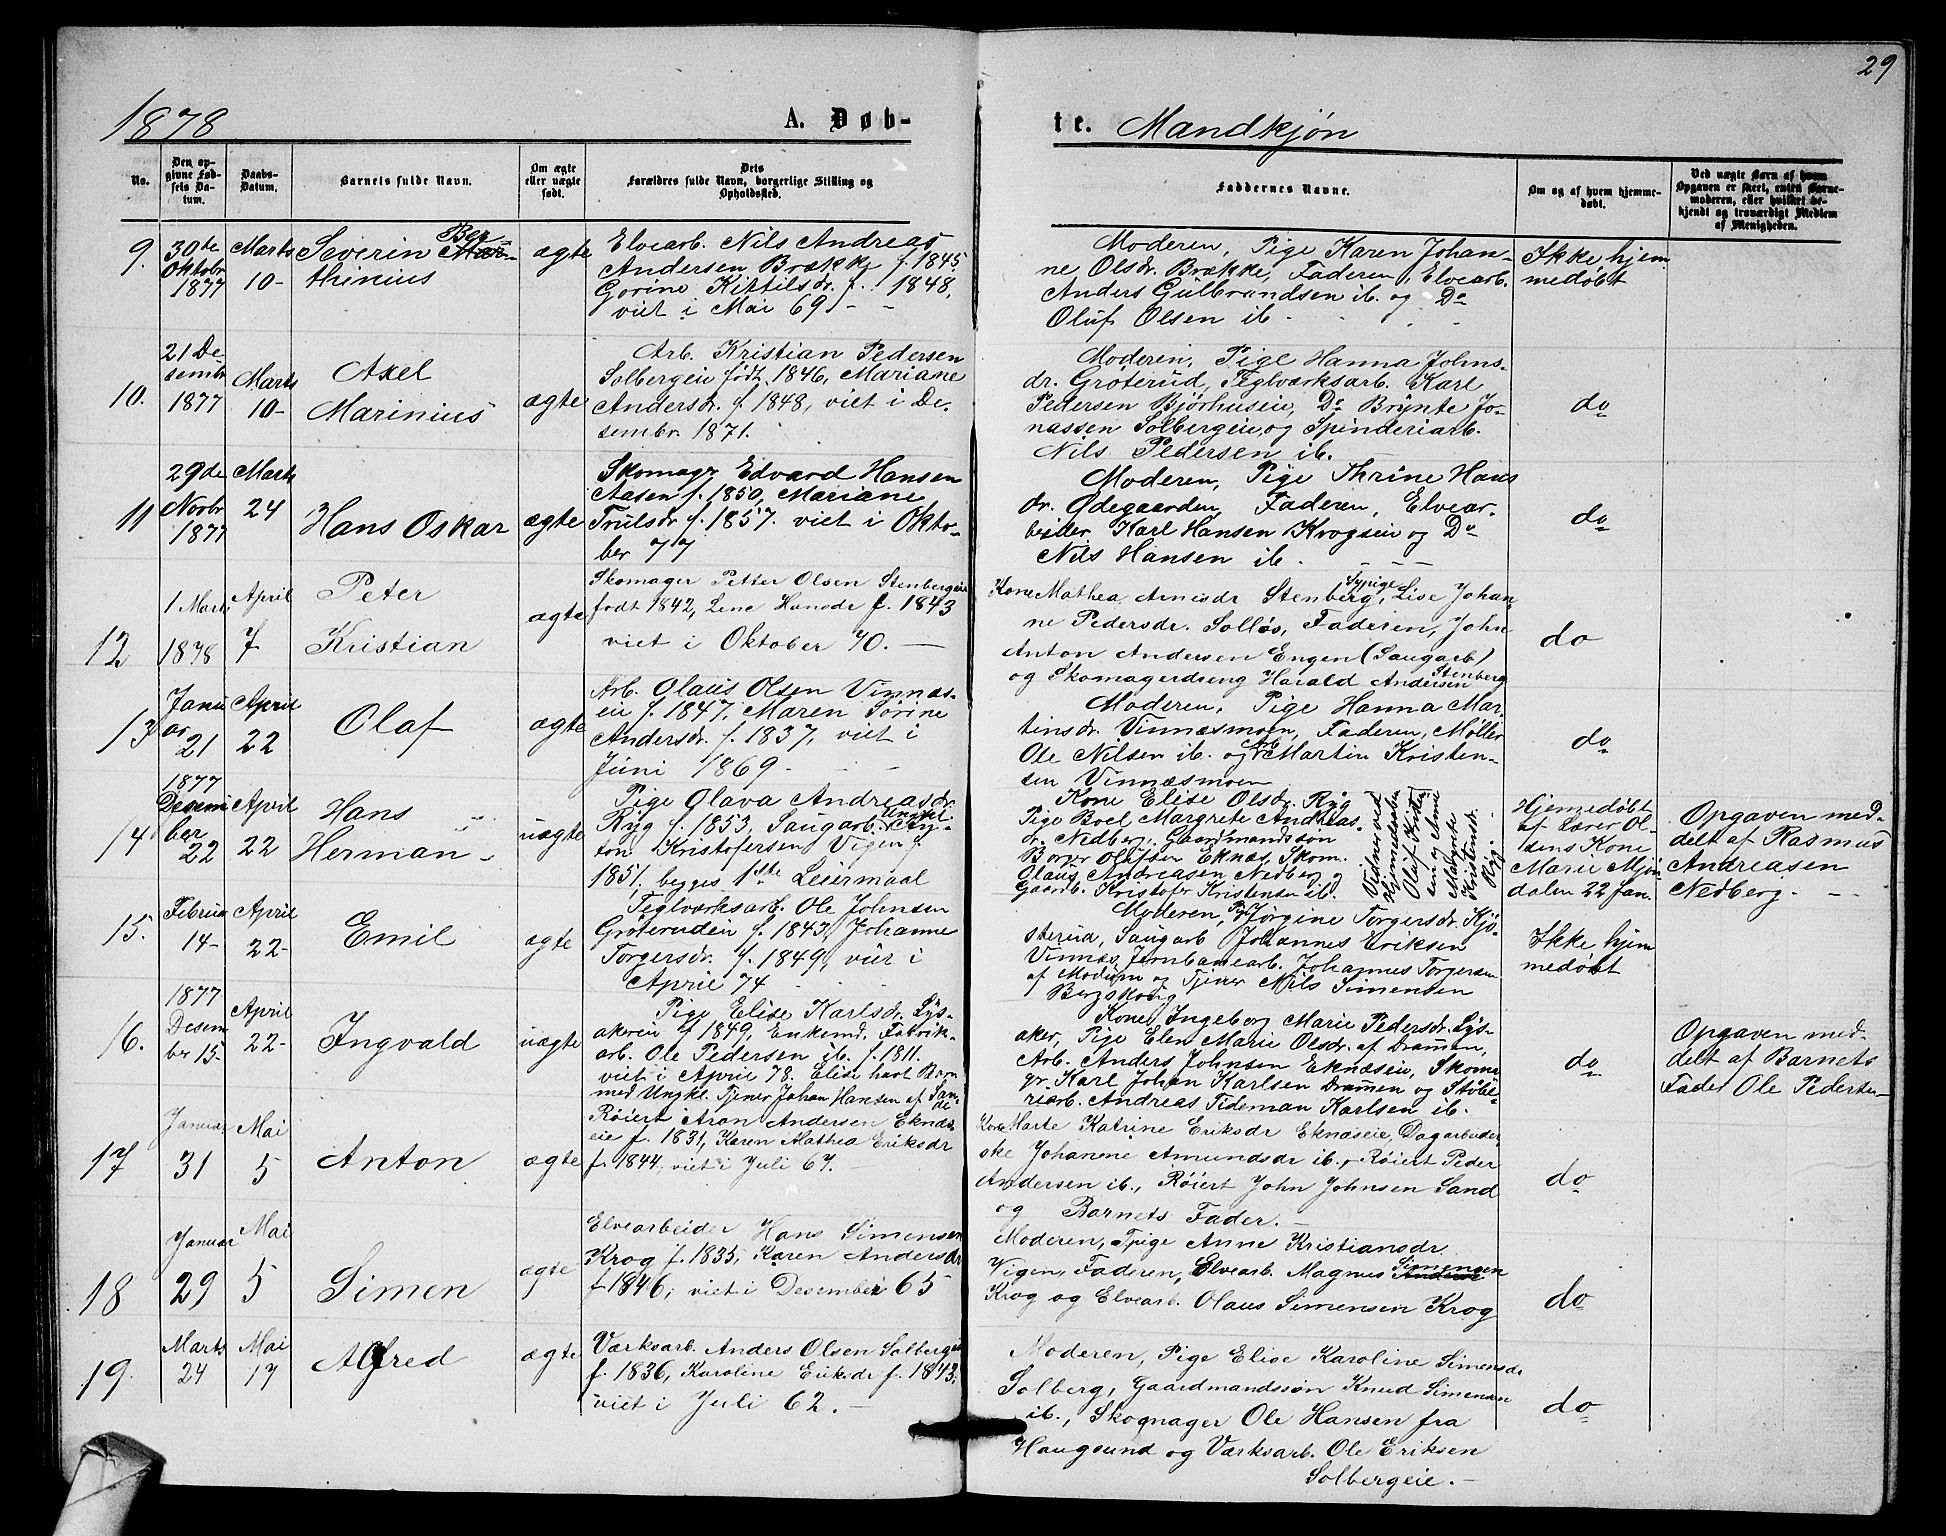 29
1878
A. Døb-
te. Mandkjøn
No.
Den op-
givne Fød-
sels Da-
tum.
Daabs-
Datum.
Barnets fulde Navn.
Om ægte
eller uægte
født.
Dets
Forældres fulde Navn, borgerlige Stilling og
Opholdssted.
Faddernes Navne.
Om og af hvem hjemme-
døbt.
Ved uægte Børn af hvem
Opgaven er skeet, enten Barne-
moderen, eller hvilket be-
kjendt og troværdigt Medlem
af Menigheden.
9.
30te
Oktobr
1877
Marts
10-
Severin Ber-
thinius
ægte
Elvearb. Nils Andreas
Andersen Brække f. 1845
Gorine Kittilsdr. f. 1848,
viet i Mai 69 - -
Moderen, Pige Karen Johan-
ne Olsdr. Brække, Faderen, Elvearb.
Anders Gulbrandsen ib. og Do
Oluf Olsen ib -
Ikke hjem
medøbt
10.
21 De
sembr
1877
Marts
10-
Axel
Marinius
ægte
Arb. Kristian Pedersen
Solbergeie født 1846, Mariane
Andersdr. f. 1848, viet i De-
sembr. 1871.
Moderen, Pige Hanna Johns-
dr. Groterud, Teglværksarb. Karl
Pedersen Bjørhuseie, Do Brynte Jo-
nassen Solbergeie, og Spinderiarb.
Nils Pedersen ib. -
do
11
29de
Novbr
1877
Marts
24
Hans Oskar
ægte
Skomagr Edvard Hansen
Aasen f. 1850, Mariane
Trulsdr f. 1857. viet i Okto-
ber 77
Moderen, Pige Thrine Hans
dr. Ødegaarden, Faderen, Elvear-
beider Karl Hansen Krogseie og Do
Nils Hansen ib. - - -
do
12
1 Marts
1878
April
7
Peter
Kristian
ægte
Skomager Petter Olsen Stenbergeie
født 1842, Lene Hansdr f. 1843
viet i Oktober 70. -
Kone Mathea Arnesdr Stenberg, Sypige Lise Johan
ne Pedersdr. Solløs, Faderen, John
Anton Andersen Engen (Saugarb)
og Skomagerdreng Harald Andersen Stenberg
do
13
Janu
ar
21
April
22
Olaf
ægte
Arb. Olaus Olsen Vinnæs-
eie f. 1847, Maren Sørine
Andersdr. f. 1837, viet i
Juni 1869 -
Moderen, Pige Hanna Mar-
tinsdr. Vinnæsmoen, Faderen, Møller
Ole Nilsen ib. og Martin Kristen-
sen Vinnæsmoen
do
14
1877
Desem
ber
22
April
22
Hans
Herman -
uægte
Pige Olava Andreasdr.
Ryg f. 1853, Saugarb. Ungkl. An-
ton Kristofersen Vigen f.
1851. begges 1ste Leiermaal
Kone Elise Olsdr. Ryg
Pige Boel Margrete Andreas-
dr. Nedberg, Gaardmandssøn
Borger Olufsen Eknæs, Skom.
Olaus Andreasen Nedberg og
Gaardb. Kristofer Kristensen ib.
Vidner ved
Hjemmedaaben
Olaf Kristen
sen og Anne
Margrete
Kristensdr.
Ryg. -
Hjemmedøbt
af Lærer Ol-
sens Kone
Marie Mjøn
dalen 22 Jan.
Opgaven med-
delt af Rasmus
Andreasen
Nedberg. -
15.
Februar
14-
April
22-
Emil
ægte
Teglværksarb. Ole Johnsen
Groteruden f. 1843, Johanne
Torgersdr. f. 1849, viet i
April 74 -
Moderen, Pige Jørgine Torgersdr. Kjø-
sterud, Saugarb Johannes Eriksen
Vinnæs, Jernbanearb. Johannes Torgersen
af Modum og Tjener Nils Simensen
Bergskoug
Ikke hjem
medøbt
16.
1877
Desem
ber 15-
April
22-
Ingvald
uægte
Pige Elise Karlsdr. Lys-
akereie f 1849, Enkemd. Fabrik-
arb. Ole Pedersen ib. f. 1811.
viet i April 78. Elise havt Barn
med Ungkl. Tjener Johan Hansen af San-
de
Kone Ingeborg Marie Pedersdr. Lys-
aker, Pige Elen Marie Olsdr. af Drammen,
Arb. Anders Johnsen Eknæseie, Skoma
gr. Karl Johan Karlsen Drammen og Støbe-
riarb. Andreas Tideman Karlsen ib.
do
Opgaven med-
delt af Barnets
Fader Ole Pedersen -
17
Januar
31
Mai
5
Anton
ægte
Røiert Aron Andersen Eknæs
eie f. 1831, Karen Mathea Eriksdr
f. 1844, viet i Juli 67. -
Kone Marte Katrine Eriksdr Eknæseie, Dagarbeider
ske Johanne Amundsdr ib., Røiert Peder
Andersen ib., Røiert John Johnsen Sand
og Barnets Fader. -
do
18
Januar
29
Mai
5
Simen
ægte
Elvearbeider Hans Simensen
Krog f. 1835, Karen Andersdr
f. 1846, viet i Desember 65 -
Moderen, Pige Anne Kristiansdr
Vigen, Faderen, Elvearb. Magnus Simensen
Krog og Elvearb. Olaus Simensen Krog
do
19.
Marts
24
Mai
17
Alfred
ægte
Værksarb. Anders Olsen Solbergeie
f. 1836, Karoline Eriksdr f. 1843,
viet i Juli 62. -
Moderen, Pige Elise Karoline Simensdr
Solberg, Gaardmandssøn Knud Simensen
ib., Skogmager Ole Hansen fra
Haugsund og Værksarb. Ole Eriksen
Solbergeie. -
do